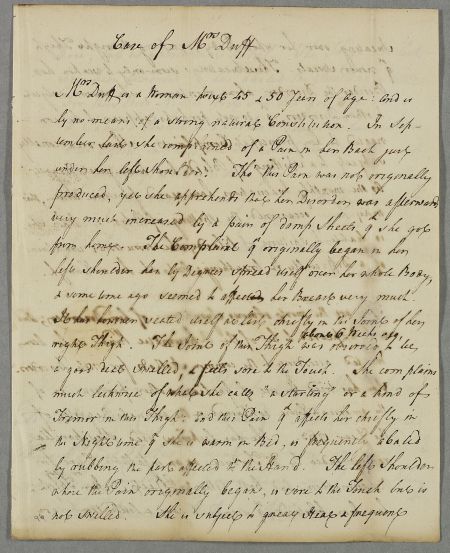 Case of Mrs Duff
Mrs Duff is a Woman twixt 45 & 50 Years of Age: and is
by no means of a strong natural Constitution. In Sep-
tember last she complained of a Pain in her Back just
under her left shoulder. Tho' this Pain was not originally
produced, yet she apprehends that her Disorder was afterwards
very much increased by a pair of damp Sheets yt she got
from home. The Complaint yt originally began in her
left shoulder has by degrees spread itself over her whole Body,
& some time ago seemed to affect her Breast very much.
It has however seated itself at last chiefly in the Joint of her
right Thigh. The Joint of this Thigh was observ'd, about 6 Weeks ago, to be
a good deal swelled, & feels sore to the Touch. She complains
much likewise of what she calls "a starting" or a kind of
Tremor in this Thigh: and this Pain yt affects her chiefly in
the Night time qn she is warm in Bed, is frequently abated
by rubbing the part affected wt the Hand. The left Shoulder
where the Pain originally began, is sore to the Touch but is
not swelled. She is subject to great Heat & frequent